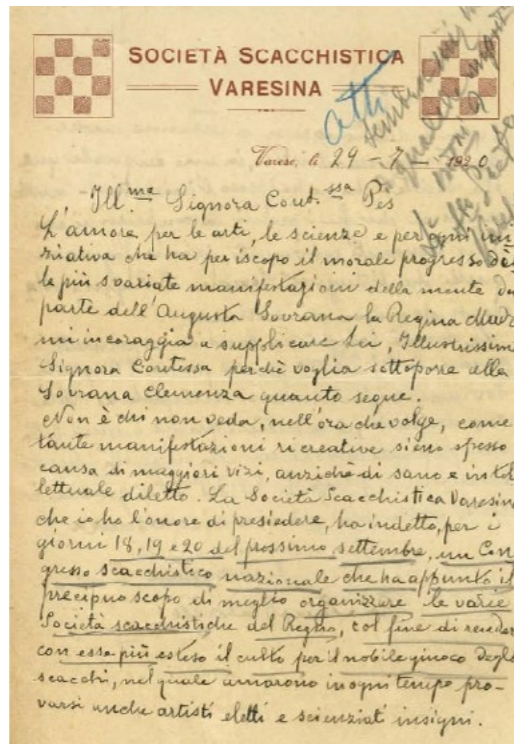 SOCIETÀ SCACCHISTICA
VARESINA
Varese, li 29 - 7 - 1920
Ill.ma Signora Cont.ssa Pes
L'amore per le arti, le scienze e per ogni ini
ziativa che ha per iscopo il morale progresso del
le più svariate manifestazioni della mente da
parte dell'Augusta Sovrana la Regina Madre
mi incoraggia a supplicare Lei, Illustrissima
Signora Contessa perchè voglia sottoporre alla
Sovrana Clemenza quanto segue.
Non è chi non veda, nell'ora che volge, come
tante manifestazioni ricreative siano spesso
causa di maggiori vizi, anzichè di sano e intel
lettuale diletto. La Società Scacchistica Varesina
che io ho l'onore di presiedere, ha indetto, per i
giorni 18, 19 e 20 del prossimo settembre, un Con
gresso scacchistico nazionale che ha appunto il
precipuo scopo di meglio organizzare le varie
Società scacchistiche del Regno, col fine di rendere
con esse più esteso il culto per il nobile giuoco degli
scacchi, nel quale amarono in ogni tempo pro-
varsi anche artisti eletti e scienziati insigni.